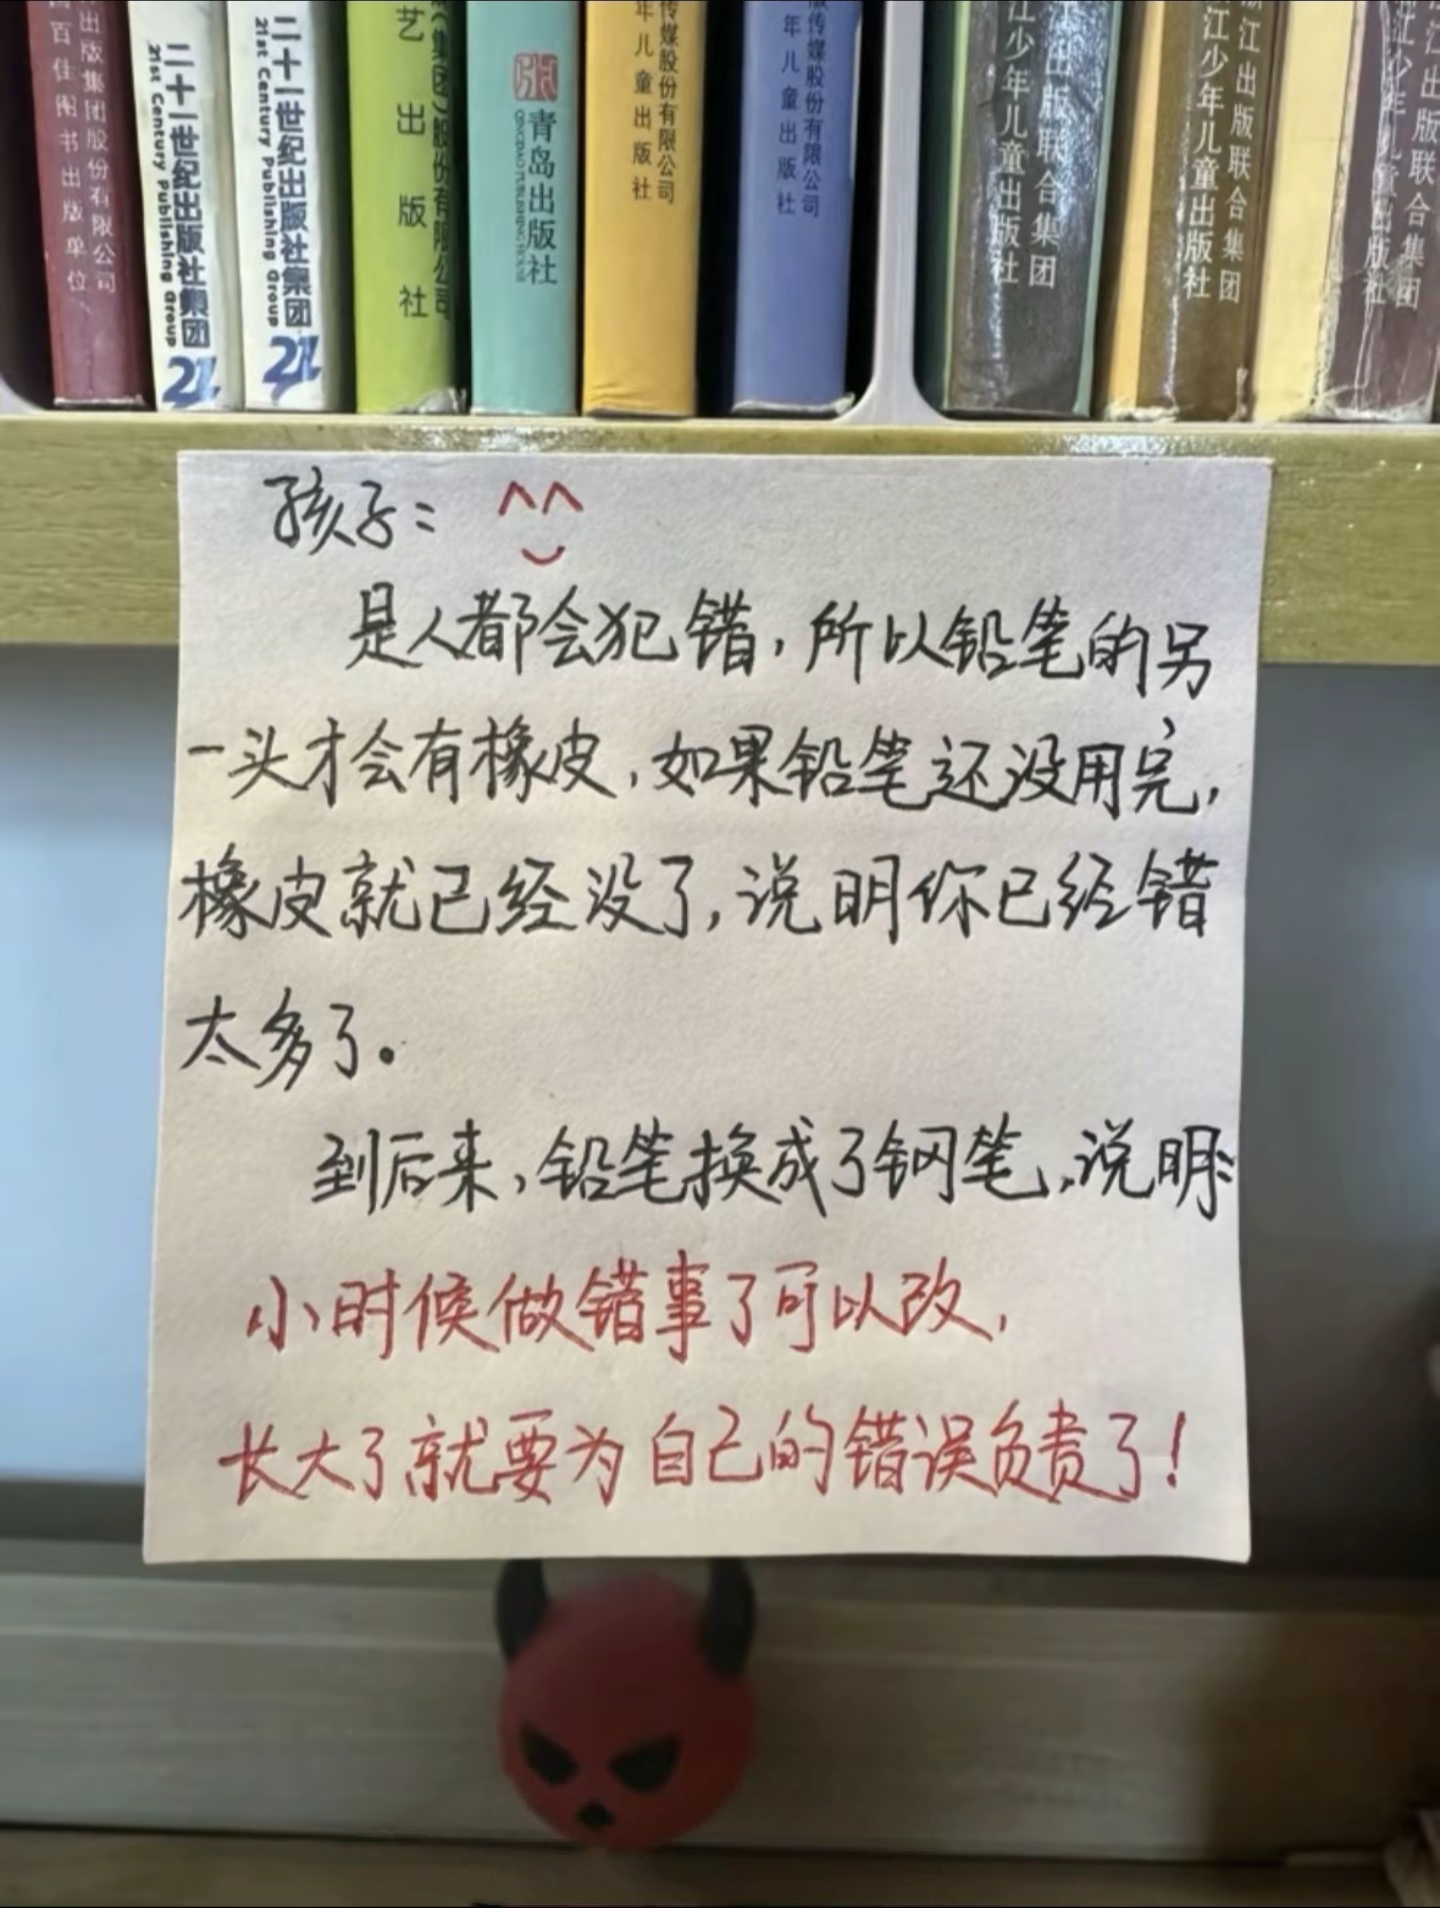 百佳图书出版单位
出版集团股份有限公司
二十一世纪出版社集团
21st Century Publishing Group
21
二十一世纪出版社集团
21st Century Publishing Group
21
艺出版社
(集团)股份有限公司
青岛出版社
年儿童出版社
传媒股份有限公司
年儿童出版社
版传媒股份有限公司
江少年儿童出版社
江出版联合集团
江少年儿童出版社
浙江出版联合集团
浙江少年儿童出版社
江出版联合集团
孩子：
是人都会犯错，所以铅笔的另
一头才会有橡皮，如果铅笔还没用完，
橡皮就已经没了，说明你已经错
太多了。
到后来，铅笔换成了钢笔，说明：
小时候做错事了可以改，
长大了就要为自己的错误负责了！